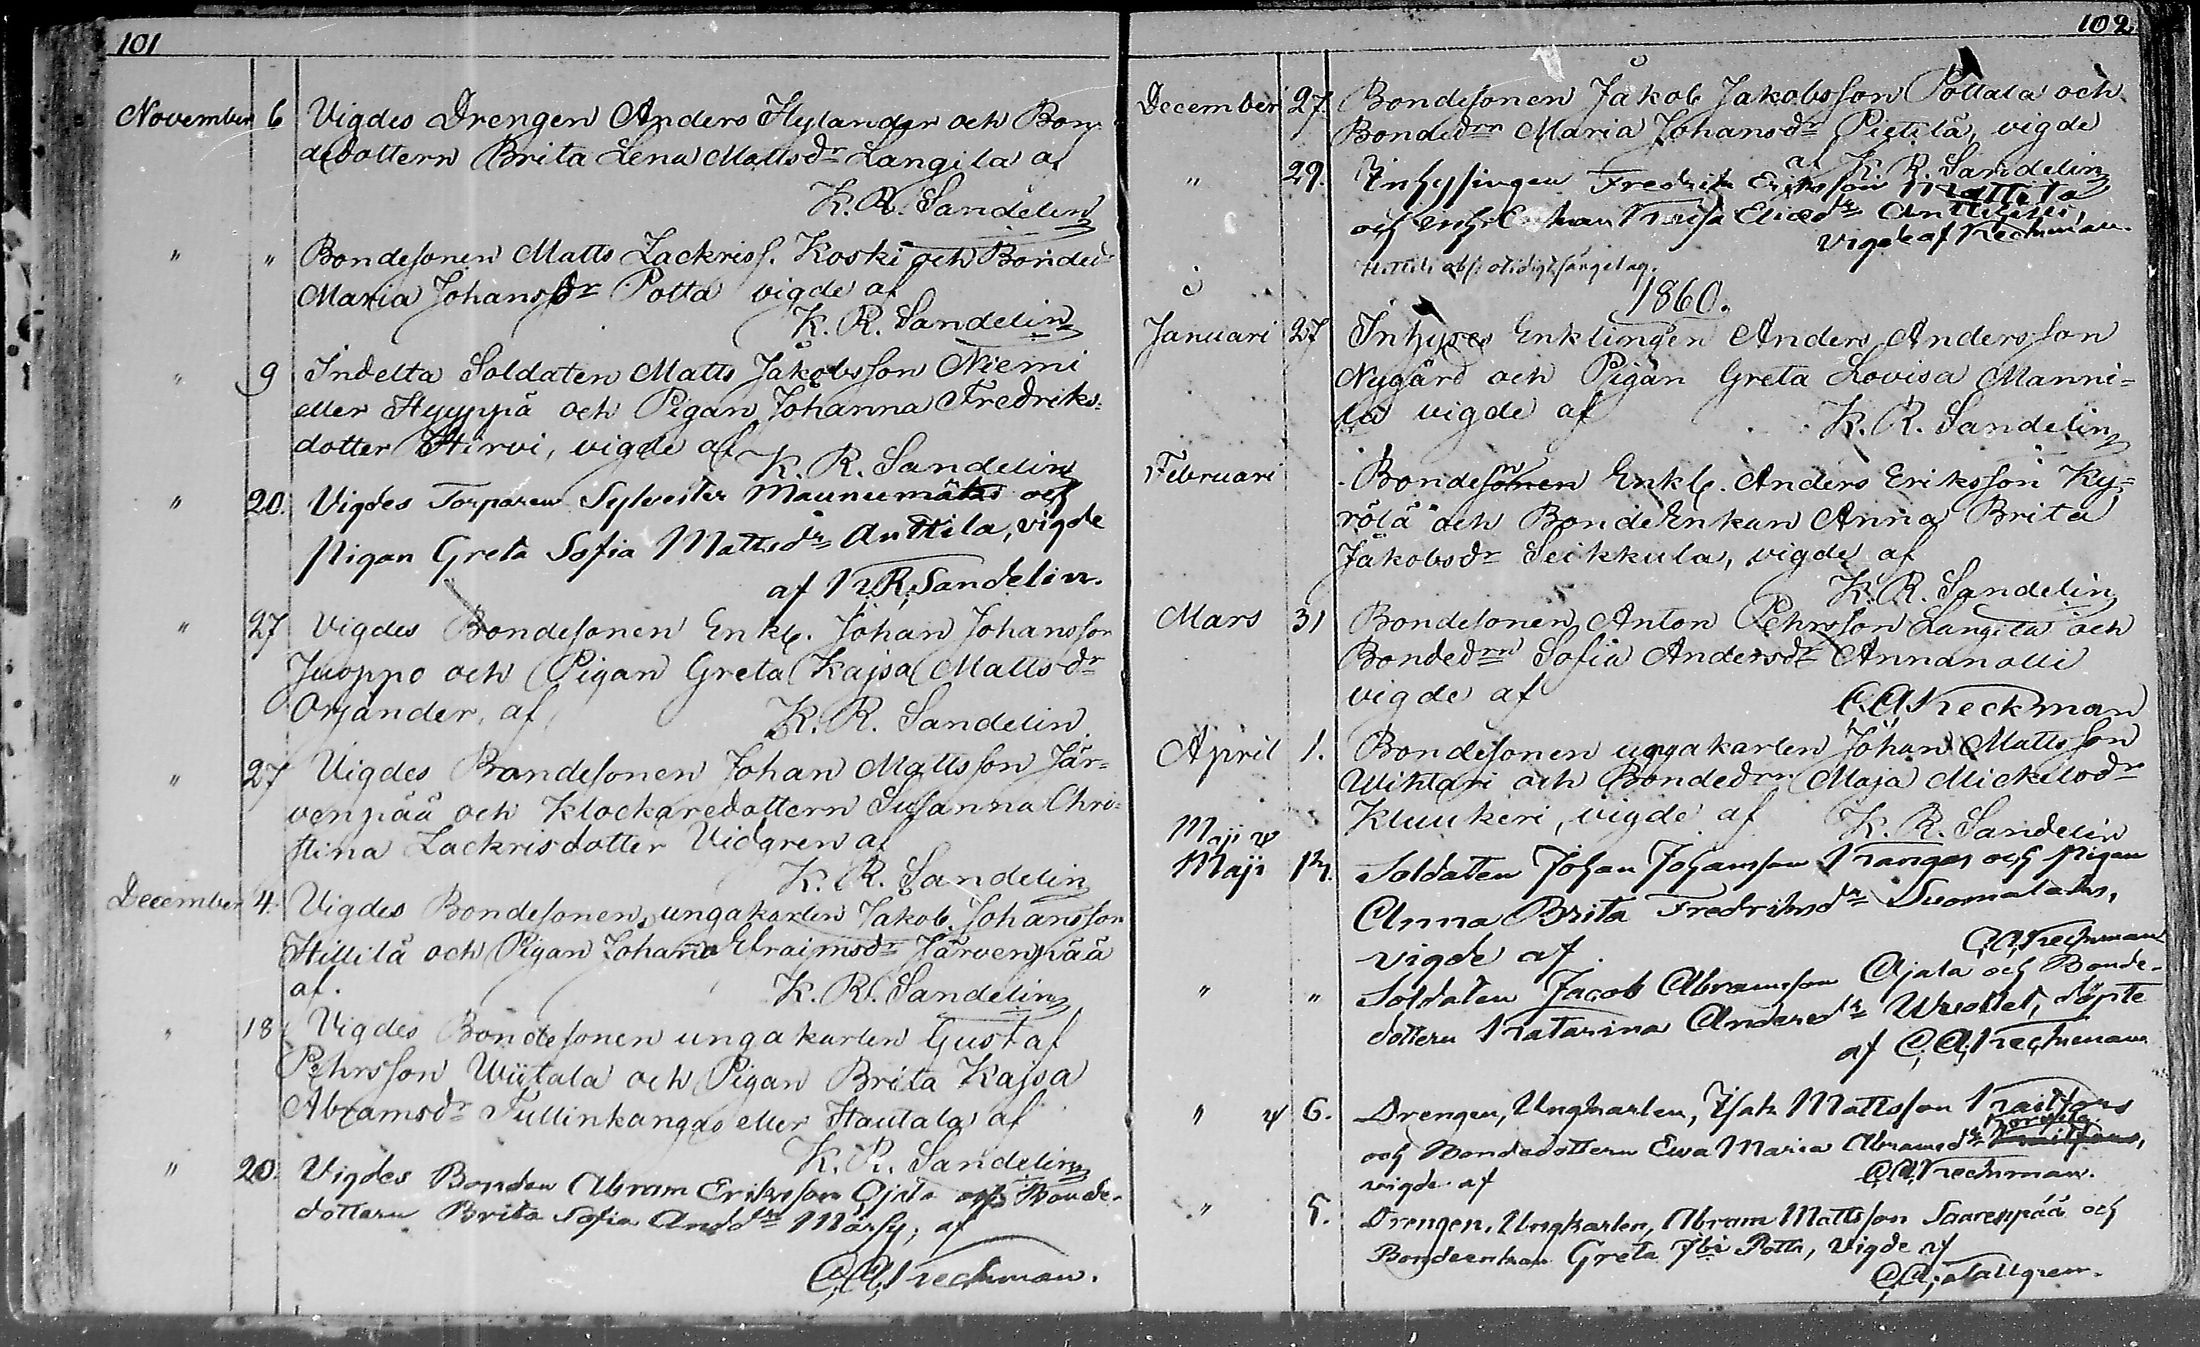 101
November 6 Vigdes Drengen Anders Hylander och Bon-
dedottern Brita Lena Mattsdr Langila af
K. R. Sandelin
" " Bondesonen Matts Zackriss. Koski och Bonded.
Maria Johansdr Potta vigde af
K. R. Sandelin
" 9 Indelta Soldaten Matts Jakobsson Niemi
eller Hyyppä och Pigan Johanna Fredriks-
dotter Hirvi, vigde af
K. R. Sandelin
" 20. Vigdes Torparen Sylvester Maunumäki och
Pigan Greta Sofia Mattsdr Anttila, vigde
af K. R. Sandelin.
" 27 Vigdes Bondesonen Enkl. Johan Johansson
Juoppo och Pigan Greta Kajsa Mattsdr
Orjander, af
K. R. Sandelin.
" 27 Vigdes Bondesonen Johan Mattsson Jär-
venpää och Klockaredottern Susanna Chri-
stina Zackrisdotter Vidgren af
K. R. Sandelin
December 4. Vigdes Bondesonen, ungakarlen Jakob Johansson
Hillilä och Pigan Johanna Efraimsdr Järvenpää
af. K. R. Sandelin
" 18 Vigdes Bondesonen ungakarlen Gustaf
Pehrsson Wiitala och Pigan Brita Kajsa
Abramsdr Tullinkangas eller Hautala af
K. R. Sandelin
" 20. Vigdes Bonden Abram Eriksson Ojala och Bonde-
dottern Brita Sofia Andr Märsy, af
C. A. Keckman.
102
December 27. Bondesonen Jakob Jakobsson Pottala och
Bondedrn Maria Johansdr Pietilä, vigde
af K. R. Sandelin
" 29. Inhysingen Fredrik Eriksson Mattila
och Enkan Kajsa Eliædr Anttila,
vigde af Keckman.
1860.
Januari 27 Inhyses Enklingen Anders Andersson
Nygård och Pigan Greta Lovisa Manni-
la vigde af
K. R. Sandelin
Februari Bondesonen Enkl. Anders Eriksson Ky-
rölä och BondeEnkan Anna Brita
Jakobsdr Seikkula, vigde af
K. R. Sandelin
Mars 31 Bondesonen Anton Pehrsson Langila och
Bondedrn Sofia Andersdr Annanolli
vigde af
C. A. Keckman
April 1. Bondesonen ungakarlen Johan Mattsson
Wihtari och Bondedrn Maja Mickelsdr
Kluukeri, vigde af
K. R. Sandelin
Maji
Maji Soldaten Johan Johansson Kangas och Pigan
Anna Brita Fredriksdr Suomalaks,
vigde af
C. A. Keckman
" " Soldaten Jacob Abramsson Ojala och Bonde-
dottern Katarina Andersdr döpte
af C. A. Keckman
" 6. Drengen, Ungkarlen, Isak Mattsson
och Bondedottern Ewa Maria Abramsdr
vigde af C. A. Keckman.
" 5. Drengen, Ungkarlen, Abram Mattsson Saarenpää och
Bondeenkan Greta Potta, vigde af
C. A. Tallgren.